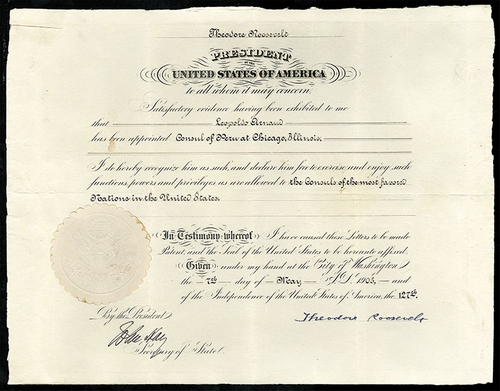 Theodore Roosevelt
PRESIDENT
OF THE
UNITED STATES OF AMERICA
to all whom it may concern:
Satisfactory evidence having been exhibited to me
that Leopoldo Arnaud
has been appointed Consul of Peru at Chicago, Illinois,
I do hereby recognize him as such, and declare him free to exercise and enjoy such
functions, powers and privileges as are allowed to the Consuls of the most favored
Nations in the United States.
In Testimony whereof I have caused these Letters to be made
Patent, and the Seal of the United States to be hereunto affixed.
Given under my hand at the City of Washington
the 7th day of May A.D. 1903, and
of the Independence of the United States of America, the 127th.
By the President
Theodore Roosevelt
John Hay
Secretary of State